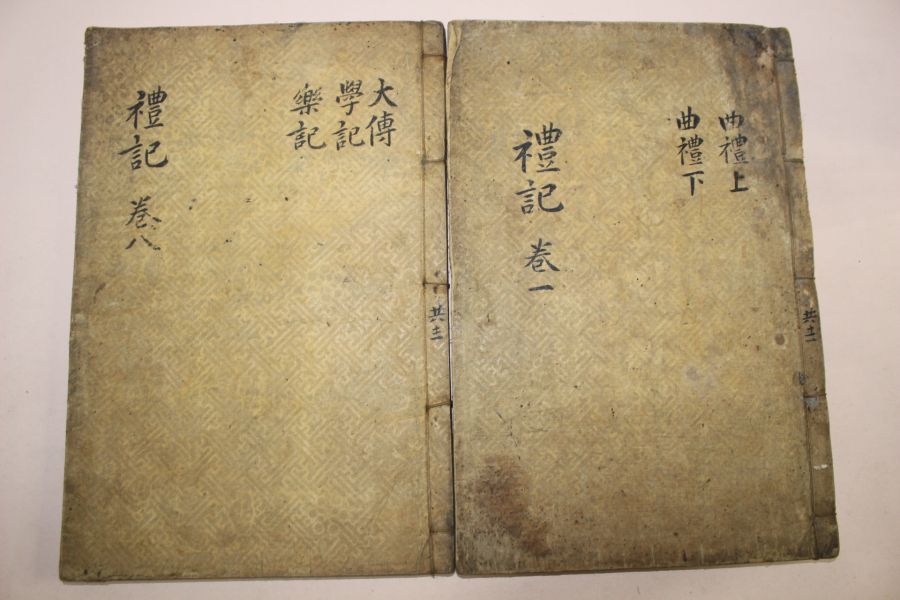 曲禮上
曲禮下
禮記 卷一
共十二
大傳
學記
樂記
禮記 卷八
共十二